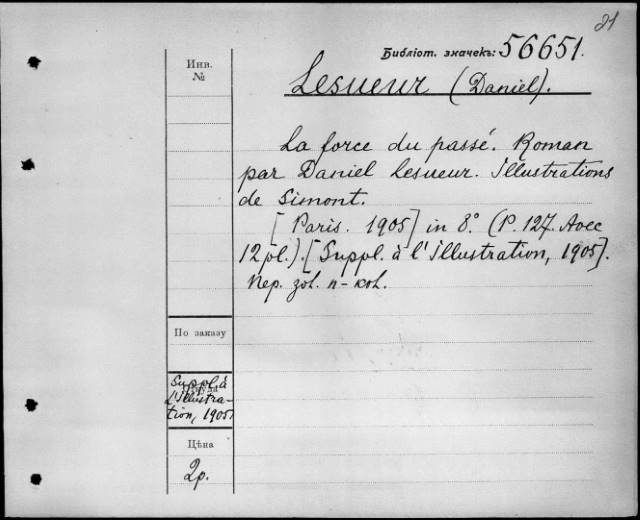 21
Библіот. значекъ: 56651.
Инв.
№
Lesueur (Daniel).
La force du passé. Roman
par Daniel Lesueur. Illustrations
de Simont.
[Paris. 1905] in 8.° (P. 127. Avec
12 pl.). [Suppl. à l'Illustration, 1905].
Пер. зол. п-кол.
По заказу
Suppl. à
l'Illustra-
tion, 1905.
Цѣна
2р.